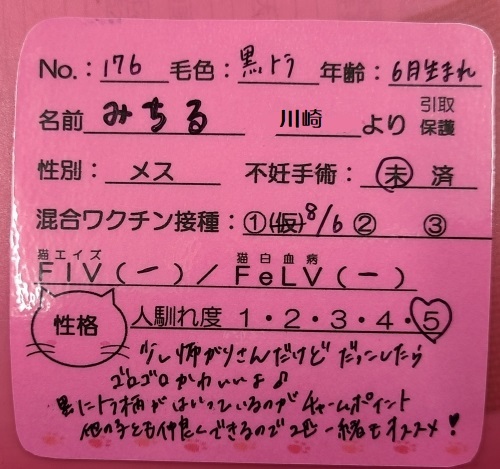 No.：176 毛色：黒トラ 年齢：6月生まれ
名前 みちる 川崎 より 引取 保護
性別： メス 不妊手術： 未 済
混合ワクチン接種：①(仮)8/6 ② ③
猫エイズ 猫白血病
FIV(ー)／FeLV(ー)
性格 人馴れ度 1・2・3・4・5
少し怖がりさんだけど だっこしたら
ゴロゴロかわいいよ♪
黒にトラ柄がはいっているのがチャームポイント
他の子とも仲良くできるので2匹一緒もオススメ！